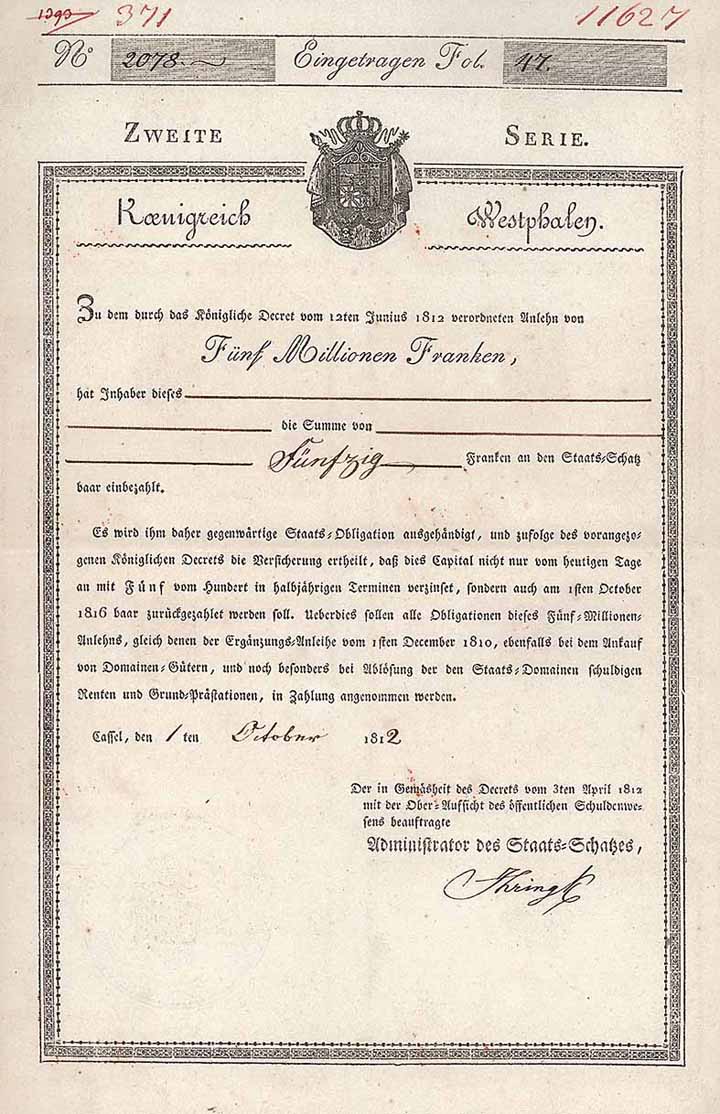 371 11627
No 2078. Eingetragen Fol. 47.
ZWEITE SERIE.
Kœnigreich Westphalen.
Zu dem durch das Königliche Decret vom 12ten Junius 1812 verordneten Anlehn von
Fünf Millionen Franken,
hat Inhaber dieses
die Summe von
Fünfzig Franken an den Staats-Schatz
baar einbezahlt.
Es wird ihm daher gegenwärtige Staats-Obligation ausgehändigt, und zufolge des vorangezo-
genen Königlichen Decrets die Versicherung ertheilt, daß dies Capital nicht nur vom heutigen Tage
an mit Fünf vom Hundert in halbjährigen Terminen verzinset, sondern auch am 1sten October
1816 baar zurückgezahlet werden soll. Ueberdies sollen alle Obligationen dieses Fünf-Millionen-
Anlehns, gleich denen der Ergänzungs-Anleihe vom 1sten December 1810, ebenfalls bei dem Ankauf
von Domainen-Gütern, und noch besonders bei Ablösung der den Staats-Domainen schuldigen
Renten und Grund-Prästationen, in Zahlung angenommen werden.
Cassel, den 1 ten October 1812
Der in Gemäsheit des Decrets vom 3ten April 1812
mit der Ober-Aufsicht des öffentlichen Schuldenwe-
sens beauftragte
Administrator des Staats-Schatzes,